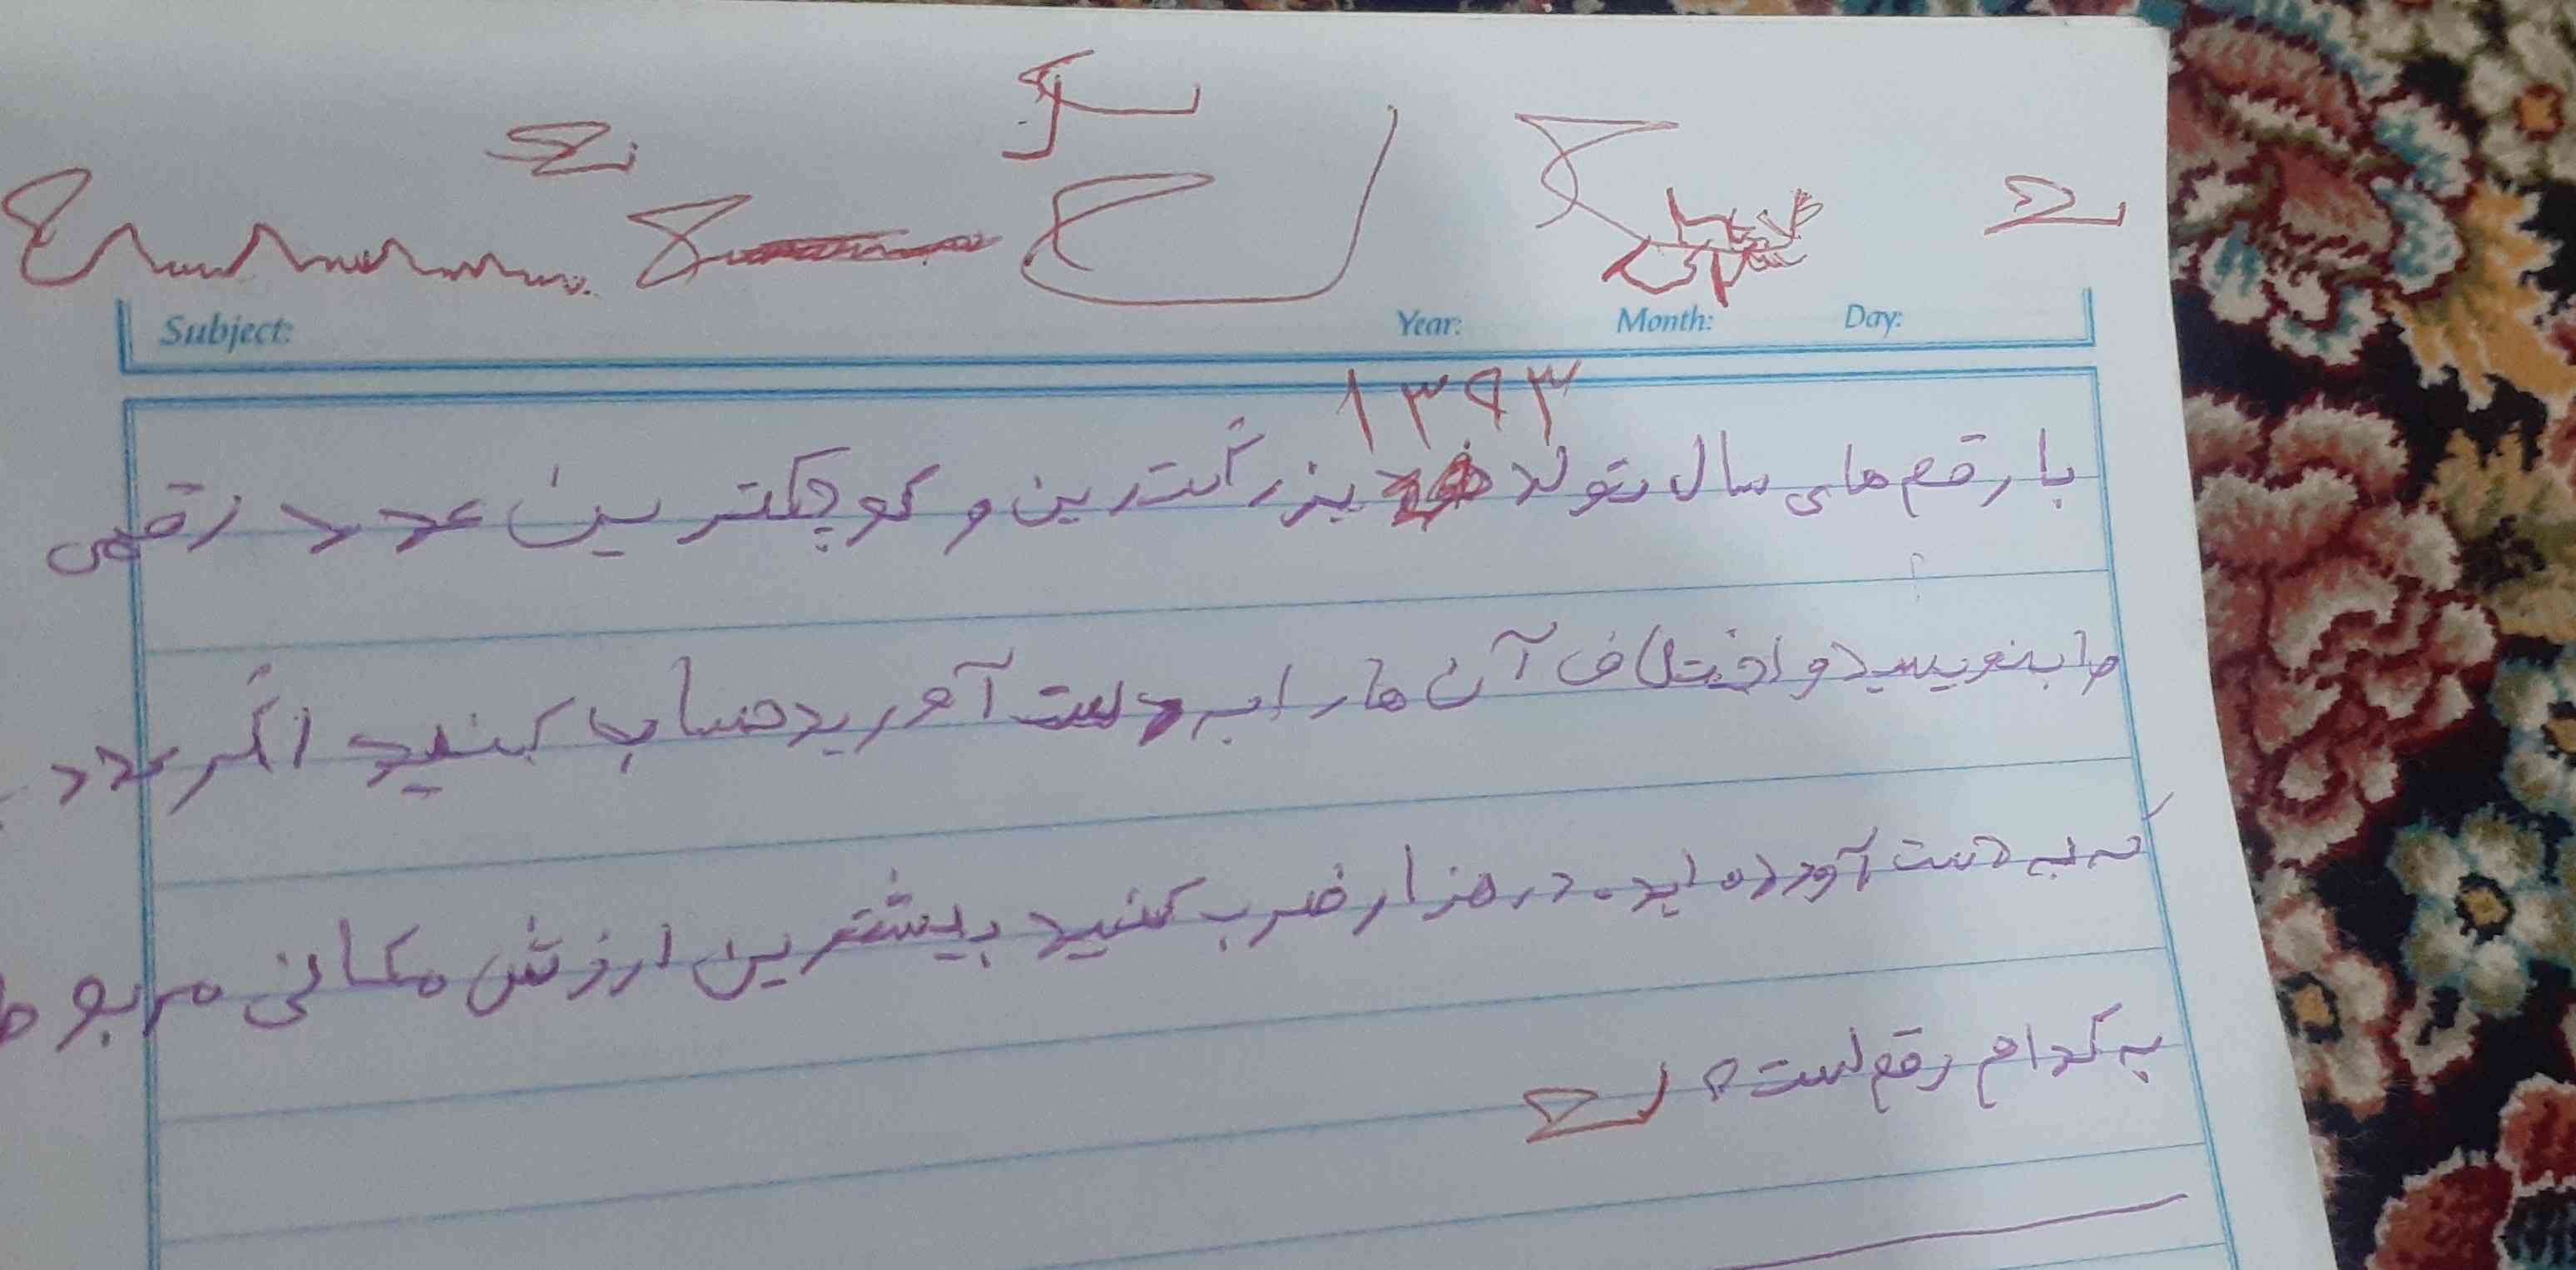 Subject: Year: Month: Day:
۱۳۹۳
با رقم های سال تولد بزرگت‌رین و کوچکترین عدد رقمی
را بنویسید و اختلاف آن ها را به دست آورید حساب کنید اگر عدد
که به دست آورده اید. در هزار ضرب کنید بیشترین ارزش مکانی مربوط
به کدام رقم است؟